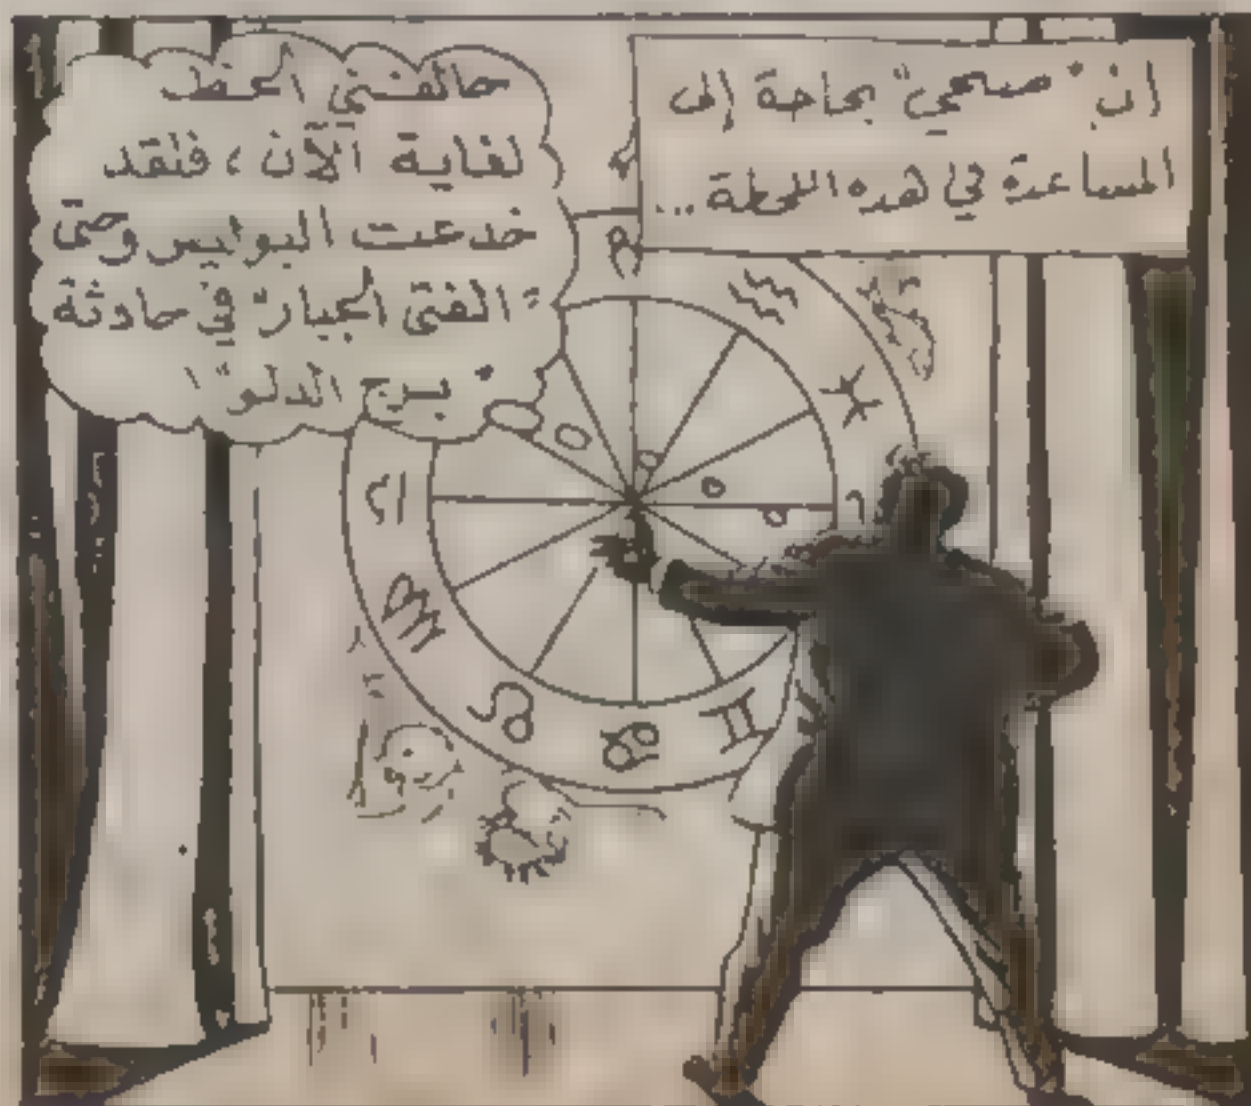 إن "صبحي" بحاجة إلى
المساعدة في هذه اللحظة...
حالفني الحظ
لغاية الآن ، فلقد
خدعت البوليس وحتى
"الفتى الجبار" في حادثة
"برج الدلو"!